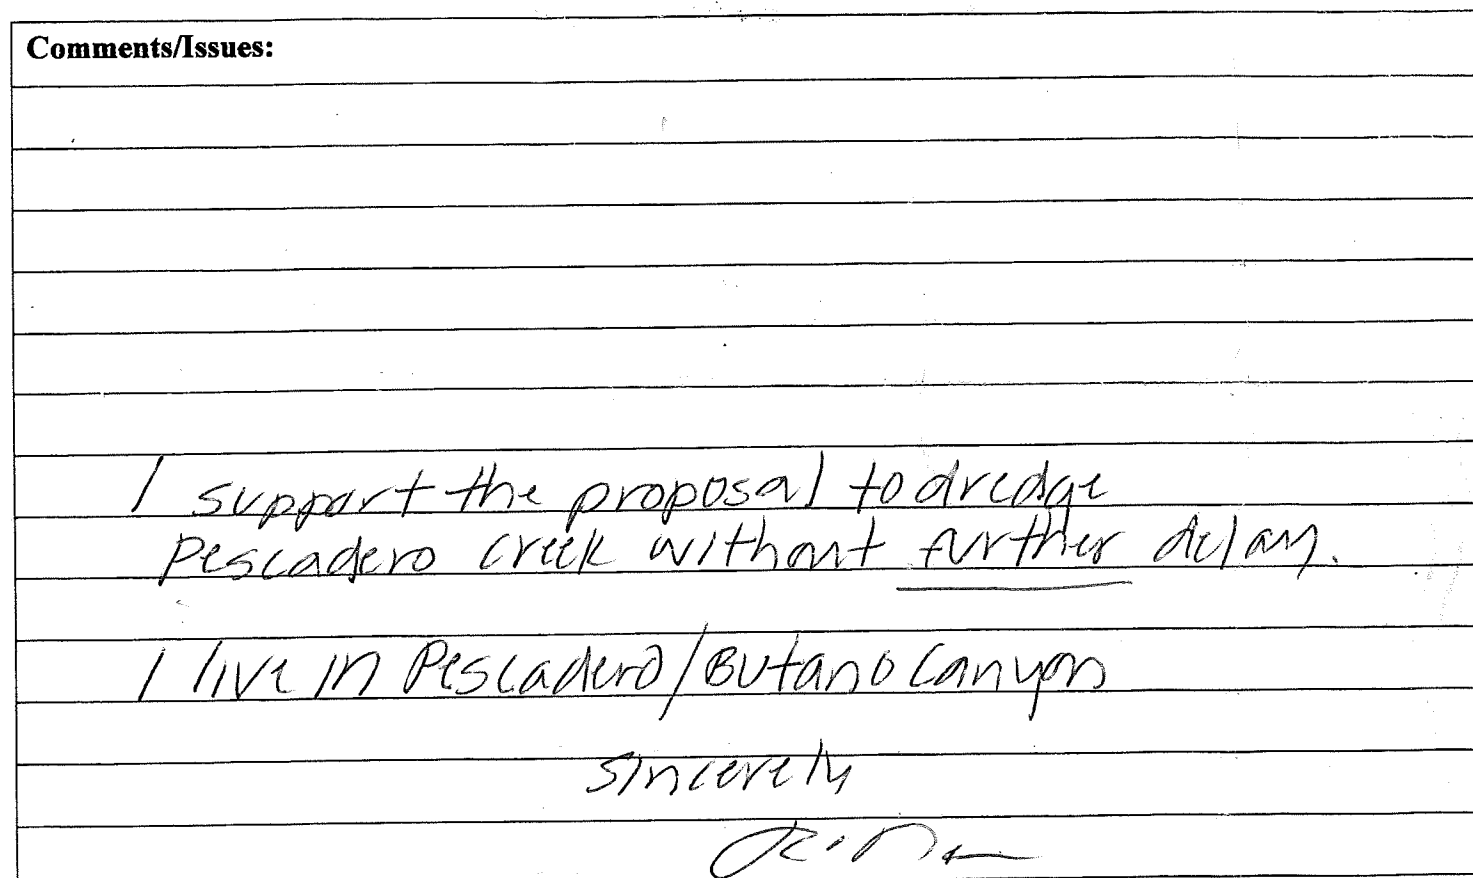 Comments/Issues:
I support the proposal to dredge
Pescadero Creek without further delay.
I live in Pescadero/Butano Canyon
Sincerely